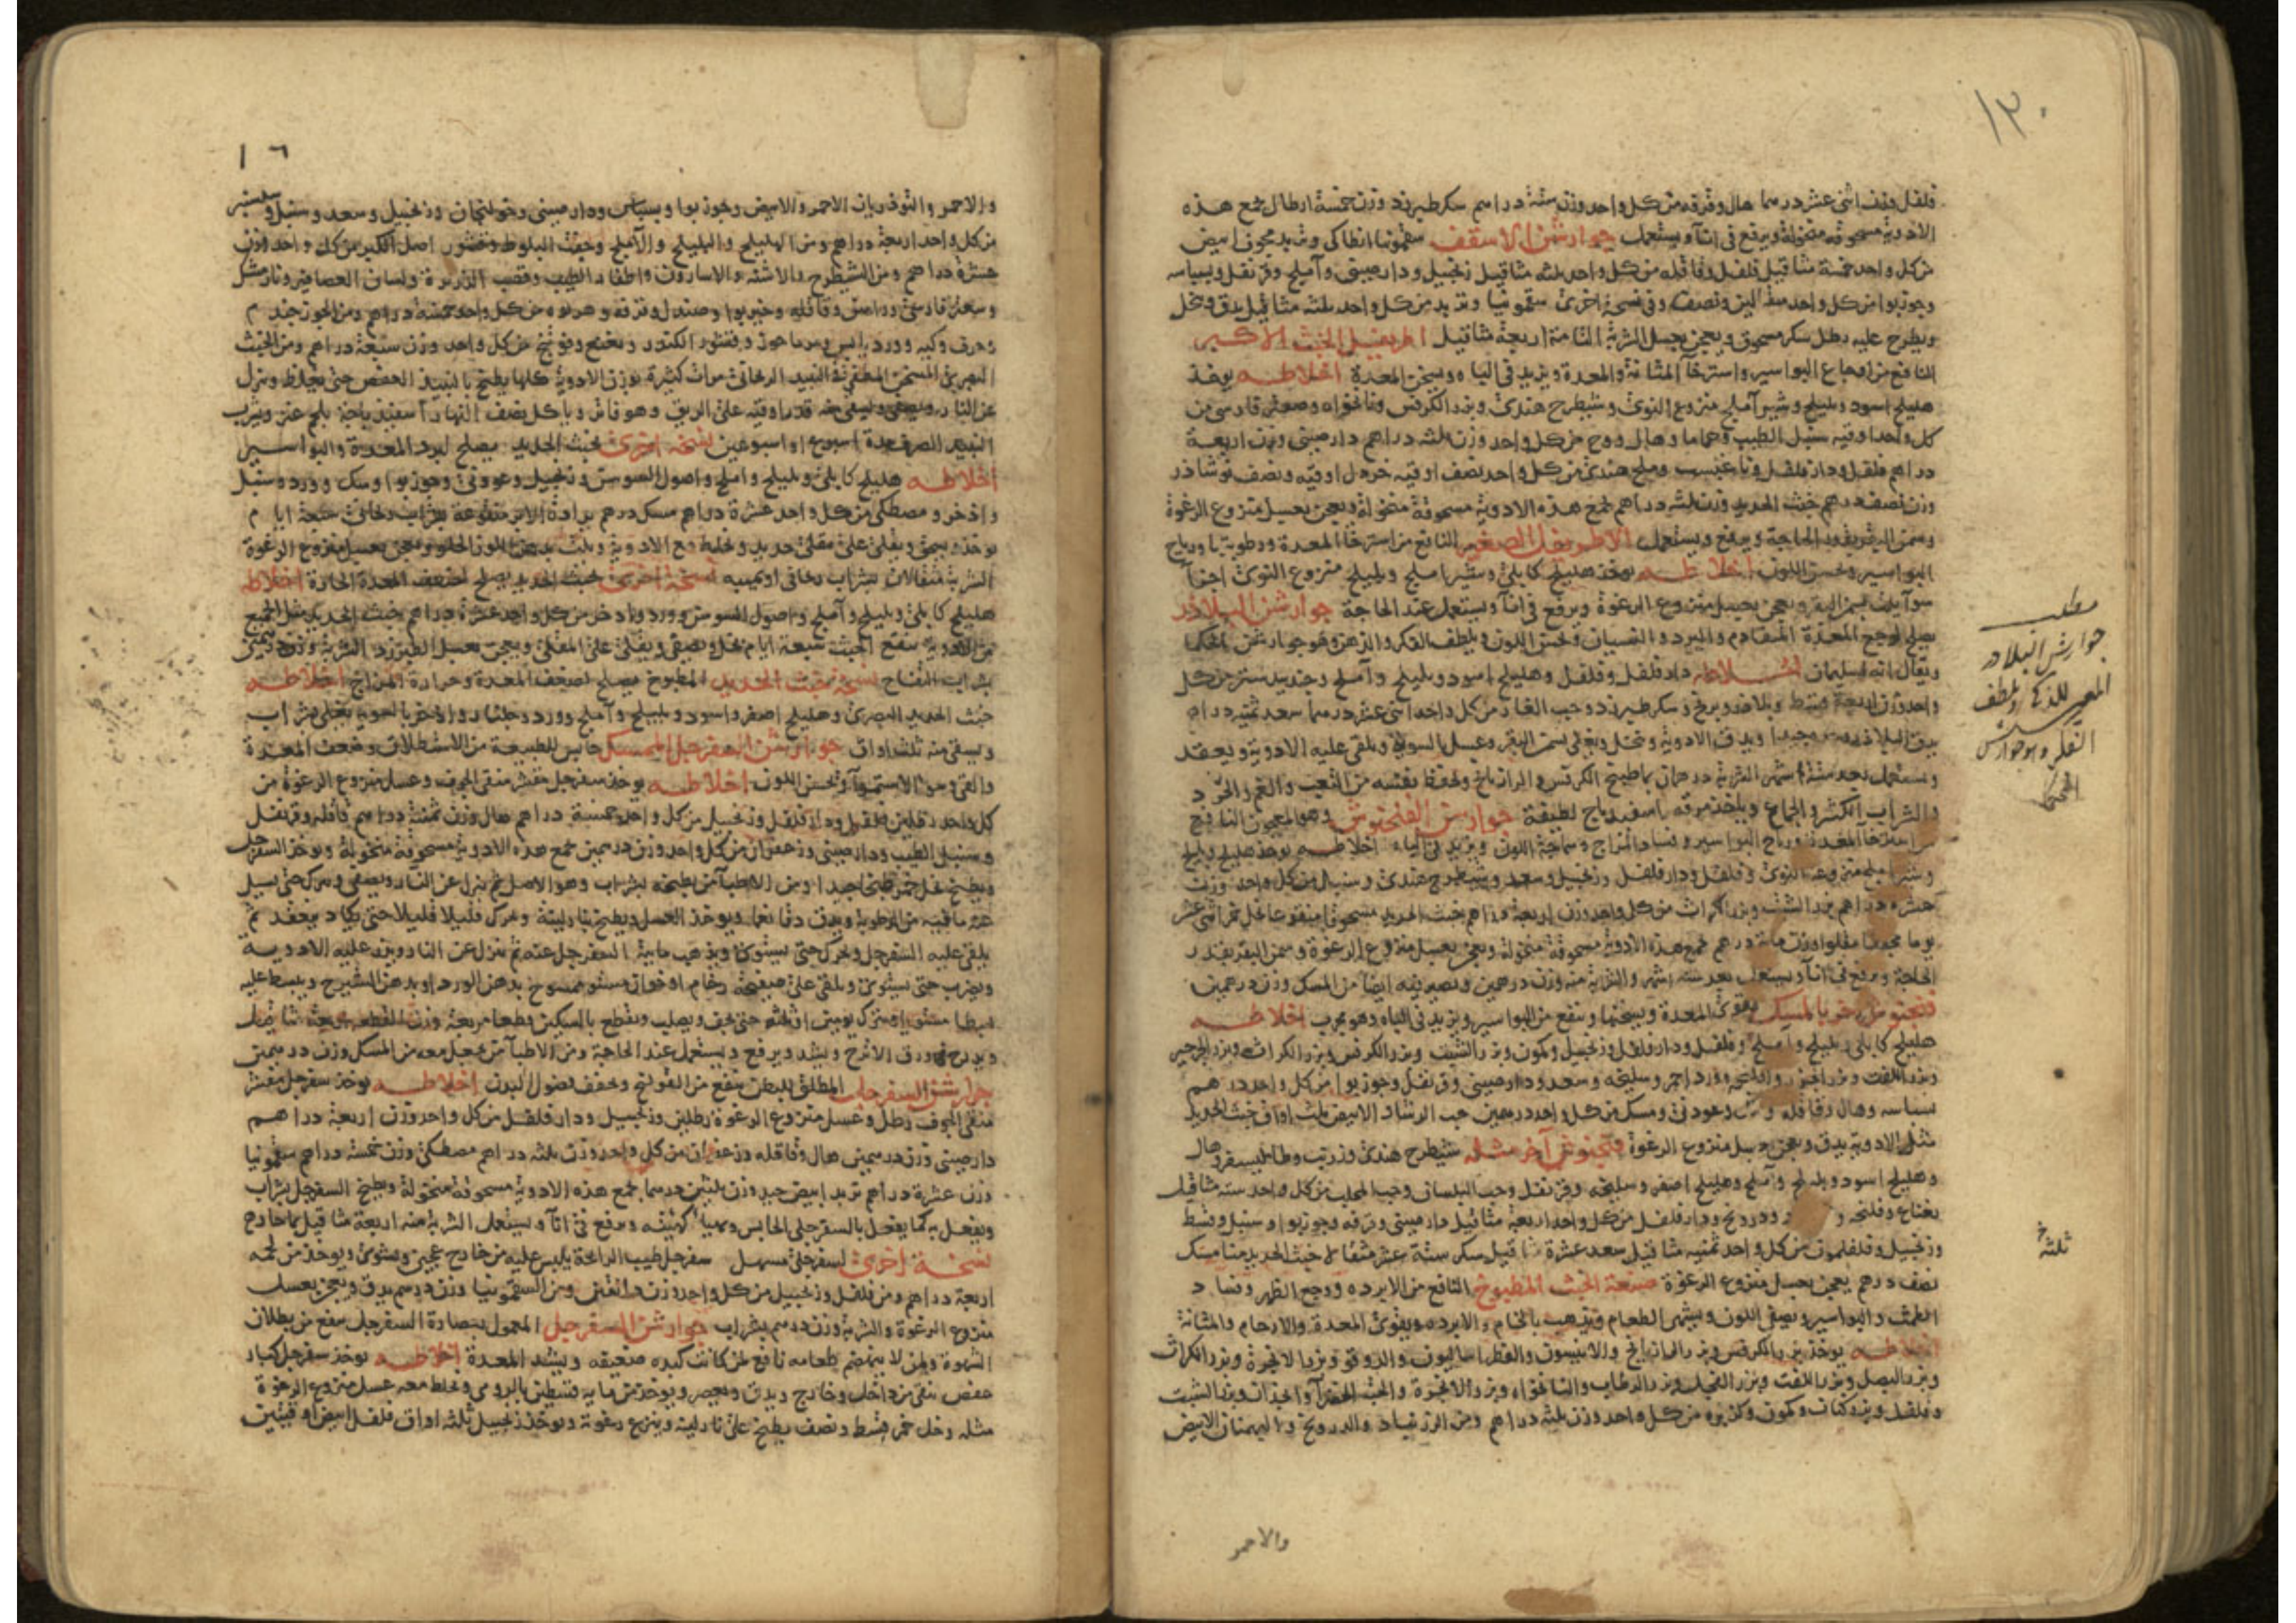 ١٣٠
فلفل وزن اثنى عشر درهما هال وقرفه من كل واحد وزن ستة دراهم سكر طبرزد وزن خمسة ارطال تجمع هذه
الادوية مسحوقه منخولة ويرفع فى انآء ويستعمل جوارشن الاسقف سقمونيا انطاكى وتربد مجوف ابيض
من كل واحد خمسة مثاقيل فلفل وقاقله من كل واحد ثلثه مثاقيل زنجبيل ودارصينى وآملج وقرنفل وبسباسه
وجوزبوا من كل واحد مثقالين ونصف وفى نسخة اخرى سقمونيا وتربد من كل واحد ثلثه مثاقيل يدق وينخل
ويطرح عليه رطل سكر مسحوق ويعجن بعسل الشربة التامة اربعة مثاقيل اطريفل الخبث الاكبر
النافع من اوجاع البواسير واسترخآ المثانة والمعدة ويزيد فى الباه ويسخن المعدة اخلاطه يوخذ
هليلج اسود وبليلج وشير آملج منزوع النوى وشيطرج هندى وبزر الكرفس ونانخواه وصعتر فارسى من
كل واحد اوقيه سنبل الطيب وحماما وهال ووج من كل واحد وزن ثلثه دراهم دارصينى وزن اربعة
دراهم فلفل ودارفلفل وملح هندى من كل واحد نصف اوقيه خردل اوقيه ونصف نوشاذر
وزن نصف درهم خبث الحديد وزن ثلثه دراهم تجمع هذه الادوية مسحوقة منخولة ويعجن بعسل منزوع الرغوة
وسمن البقر بقدر الحاجة ويرفع ويستعمل الاطريفل الصغير النافع من استرخآ المعدة ورطوبتها ورياح
البواسير ويحسن اللون اخلاطه يوخذ هليلج كابلى وشير املج وبليلج منزوع النوى اجزآ
سوآ يلت بسمن البقر ويعجن بعسل منزوع الرغوة ويرفع فى انآ ويستعمل عند الحاجة جوارشن البلاذر
يصلح لوجع المعدة المتقادم والبرد والنسيان ويحسن اللون ويلطف الفكر والذهن وهو جوارشن الحكما
ويقال انه لسليمان اخلاطه دارفلفل وفلفل وهليلج اسود وبليلج وآملج وجندبيدستر من كل
وسمن البقر وعسل بالسوية ويلقى عليه الادوية ويعقد
ويستعمل بعد ستة اشهر الشربة درهمان بماء طبيخ الكرفس والرازيانج ويحفظ نفسه من التعب والغم والحرد
والشراب الكثير والجماع وياخذ مرقه باسفيدباج لطيفة جوارشن الفنجنوش وهو المعجون النافع
من استرخآ المعدة ورياح البواسير وفساد المزاج وسماجة اللون ويزيد فى الباه اخلاطه يوخذ هليلج وبليلج
وشير املج منزوعة النوى وفلفل ودارفلفل وزنجبيل وسعد وشيطرج هندى وسنبل من كل واحد وزن
عشره دراهم بزر الشبت وبزر الكراث من كل واحد وزن اربعة دراهم خبث الحديد مسحوقا منقوعا بخل خمر اثنى عشر
يوما مجففا مقلوا وزن مائة درهم تجمع هذه الادوية مسحوقة منخولة ويعجن بعسل منزوع الرغوة وسمن البقر بقدر
الحاجة ويرفع فى انآ ويستعمل بعد سته اشهر والشربة منه وزن درهمين ونصير فيه ايضا من المسك وزن درهمين
فنجنوش اخر بالمسك يقوى المعدة ويسخنها وينفع من البواسير ويزيد فى الباه وهو مجرب اخلاطه
هليلج كابلى وبليلج واملج وفلفل ودارفلفل وزنجبيل وكمون وبزر الشبت وبزر الكرفس وبزر الكراث وبزر الجرجير
وبزر اللفت وورد احمر وسليخه وسعد ودارصينى وقرنفل وجوزبوا من كل واحد درهم
بسباسه وهال وقاقله وعود نى ومسك من كل واحد درهمين حب الرشاد الابيض ثلث اواق خبث الحديد
مثل الادوية يدق ويعجن بعسل منزوع الرغوة فنجنوش آخر مثله شيطرج هندى
وهليلج اسود وبليلج وآملج وهليلج اصفر وسليخه وقرنفل وحب البلسان وحب المحلب من كل واحد سته مثاقيل
ودارفلفل من كل واحد اربعة مثاقيل دارصينى وقرفه وجوزبوا وسنبل وقسط
وزنجبيل وفلفلمون من كل واحد ثمنيه مثاقيل سعد عشرة مثاقيل سكر ستة عشر مثقالا خبث الحديد
نصف درهم يعجن بعسل منزوع الرغوة صنعة الخبث المطبوخ النافع من الابرده ووجع الظهر وفساد
الطمث والبواسير ويصفى اللون ويشهى الطعام ويذهب بالخام والابرده ويقوى المعدة والارحام والمثانة
اخلاطه يوخذ بزر الكرفس وبزر الرازيانج والانيسون والفطراساليون والدوقو وبزر الانجرة وبزر الكراث
وبزر البصل وبزر اللفت وبزر الفجل وبزر الرطاب والنانخواه وبزر الشبت
وفلفل وبزر كتان وكمون وكزبره من كل واحد وزن ثلثه دراهم ومن الزرنباد والدرونج والبهمنان الابيض
والاحمر
مطلب
جوارشن البلادر
ثلثه
١٦
والاحمر والتوذريان الاحمر والابيض وجوزبوا وبسباس ودارصينى وخولنجان وزنجبيل وسعد وسنبل
من كل واحد اربعة دراهم ومن الهليلج والبليلج والآملج وجفت البلوط وقشور اصل الكبر من كل واحد وزن
عشرة دراهم ومن الشيطرج والاشنه والاسارون واظفار الطيب وقصب الذريرة ولسان العصافير
وسعتر فارسى وقاقله وخيربوا وصندل وقرفه من كل واحد خمسة دراهم ومن الجوزجندم
وقشور الكندر ونعنع وفوتنج من كل واحد وزن ستبعة دراهم ومن الخبث
النبيذ الريحانى مرات كثيرة بوزن الادوية كلها يطبخ بالنبيذ العفص حتى يغلظ وينزل
عن النار ويصفى ويسقى منه قدر اوقيه على الريق وهو فاتر وياكل نصف النهار اسفيذباجة بلحم عنز ويشرب
النبيذ الصرف مدة اسبوع او اسبوعين نسخه اخرى لخبث الحديد يصلح لبرد المعدة والبواسير
اخلاطه هليلج كابلى وبليلج واملج واصول السوسن وزنجبيل وعود نى وجوزبوا وسك وورد وسنبل
واذخر ومصطكى من كل واحد عشرة دراهم مسك درهم برادة الابر منقوعة بشراب ريحانى ستبعة ايام
يوخذ ويسحق ويقلى على مقلى حديد ويخلط مع الادوية ويلت بدهن اللوز الحلو ويعجن بعسل منزوع الرغوة
الشربة مثقالان بشراب ريحانى او بميبه نسخة اخرى خبث الحديد يصلح لضعف المعدة الحارة اخلاطه
هليلج كابلى وبليلج وآملج واصول السوس وورد واذخر من كل واحد عشرة دراهم خبث الحديد مثل الجميع
من الادوية ينقع الخبث ستبعة ايام بخل ويصفى ويقلى على المقلى ويعجن بعسل الطبرزد الشربة وزن درهمين
بشراب التفاح نسخة لخبث الحديد المطبوخ يصلح لضعف المعدة وحرارة المزاج اخلاطه
خبث الحديد البصرى وهليلج اصفر واسود وبليلج وآملج وورد
ويسقى منه ثلث اواق جوارشن السفرجل الممسك حابس للطبيعة من الاستطلاق وضعف المعدة
والقى وسوء الاستمرآ ويحسن اللون اخلاطه يوخذ سفرجل مقشر منقى الجوف وعسل منزوع الرغوة من
كل واحد رطلين فلفل ودارفلفل وزنجبيل من كل واحد خمسة دراهم هال وزن ثمنية دراهم قاقله وقرنفل
وسنبل الطيب ودارصينى وزعفران من كل واحد وزن درهمين تجمع هذه الادوية مسحوقة منخولة ويوخذ السفرجل
ويطبخ بخل خمر طبخا جيدا ومن الاطبآ من يطبخه بشراب وهو الاصل ثم ينزل عن النار ويصفى ويترك حتى يسيل
عنه مافيه من الرطوبة ويدق دقا ناعما ويوخذ العسل ويطبخ بنار لينة ويحرك قليلا قليلا حتى يكاد ينعقد ثم
يلقى عليه السفرجل ويحرك حتى يستوى ويذهب مايية السفرجل عنه ثم ينزل عن النار ويذر عليه الادويه
ويضرب حتى يستوى ويلقى على صفيحة رخام او خوان مستو ممسوح بدهن الورد او بدهن الشيرج ويبسط عليه
بسطا مستويا ويترك يومين او ثلثه حتى يجف ويصلب ويقطع بالسكين قطعا مربعة وزن القطعه اربعة مثاقيل
ويدرج فى ورق الاترج ويشد ويرفع ويستعمل عند الحاجة ومن الاطبآ من يجعل معه من المسك وزن درهمين
جوارشن السفرجلى المطلق للبطن ينفع من القولنج ويخفف فضول البدن اخلاطه يوخذ سفرجل مقشر
منقى الجوف رطل وعسل منزوع الرغوة رطلين وزنجبيل ودارفلفل من كل واحد وزن اربعة دراهم
دارصينى وزن درهمين هال وقاقله وزعفران من كل واحد وزن ثلثه دراهم مصطكى وزن خمسة دراهم سقمونيا
وزن عشرة دراهم تربد ابيض جيد وزن ثلثين درهما تجمع هذه الادوية مسحوقة منخولة ويطبخ السفرجل بشراب
ويفعل به كما يفعل بالسفرجلى الحابس ويهيأ كهيئته ويرفع فى انآ ويستعمل الشربة منه اربعة مثاقيل بماء حار
نسخة اخرى لسفرجلى مسهل سفرجل طيب الرائحة يلبس عليه من خارج عجين ويشوى ويوخذ من لحمه
اربعة دراهم ومن فلفل وزنجبيل من كل واحد وزن دانقين ومن السقمونيا وزن درهم يدق ويعجن بعسل
منزوع الرغوة والشربة وزن درهم بشراب جوارشن السفرجل المعمول بعصارة السفرجل ينفع من بطلان
الشهوة ولمن لا ينهضم طعامه نافع لمن كانت كبده ضعيفه ويشد المعدة اخلاطه يوخذ سفرجل كبار
عفص ينقى من داخل وخارج ويدق ويعصر ويوخذ من مايه قسطين بالرومى ويخلط معه عسل منزوع الرغوة
مثله وخل خمر قسط ونصف يطبخ على نار لينة وينزع رغوته ويوخذ زنجبيل ثلثه اواق فلفل ابيض اوقيتين